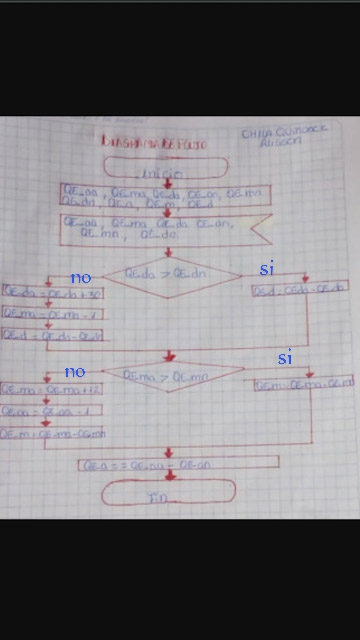 DIAGRAMA DE FLUJO
CHILA QUINDNCE
ALISSON
Inicio
QE_aa, QE_ma, QE_da, QE_an, QE_mn
QE_dn, QE_a, QE_m, QE_d
QE_aa, QE_ma, QE_da, QE_an,
QE_mn, QE_dn
QE_da > QE_dn
no
si
QE_da = QE_da + 30
QE_ma = QE_ma - 1
QE_d = QE_da - QE_dn
QE_d = QE_da - QE_dn
QE_ma > QE_mn
no
si
QE_ma = QE_ma + 12
QE_aa = QE_aa - 1
QE_m = QE_ma - QE_mn
QE_m = QE_ma - QE_mn
QE_a = = QE_aa - QE_an
Fin